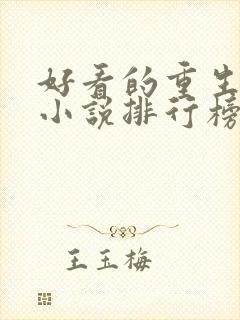 好看的重生
小说排行榜
王玉梅